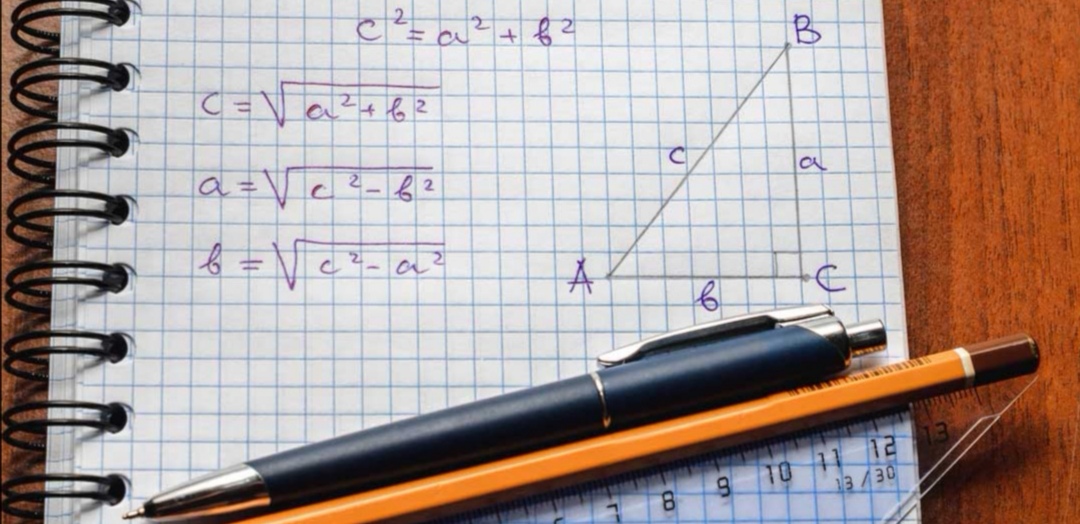 c² = a² + b²
c = √(a² + b²)
a = √(c² - b²)
b = √(c² - a²)
B
c
a
A
b
C
7 8 9 10 11 12 13
13/30